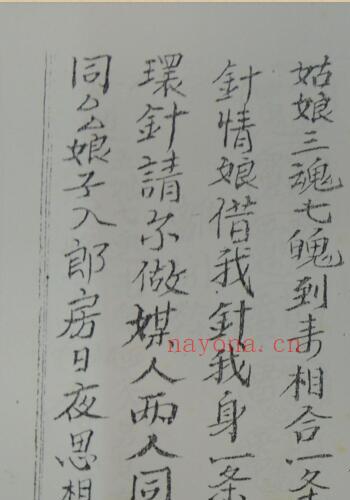 姑娘三魂七魄到来相合一条
針情娘借我針我身一条
環針請尔做媒人两人同
同众娘子入郎房日夜思想
nayona.cn